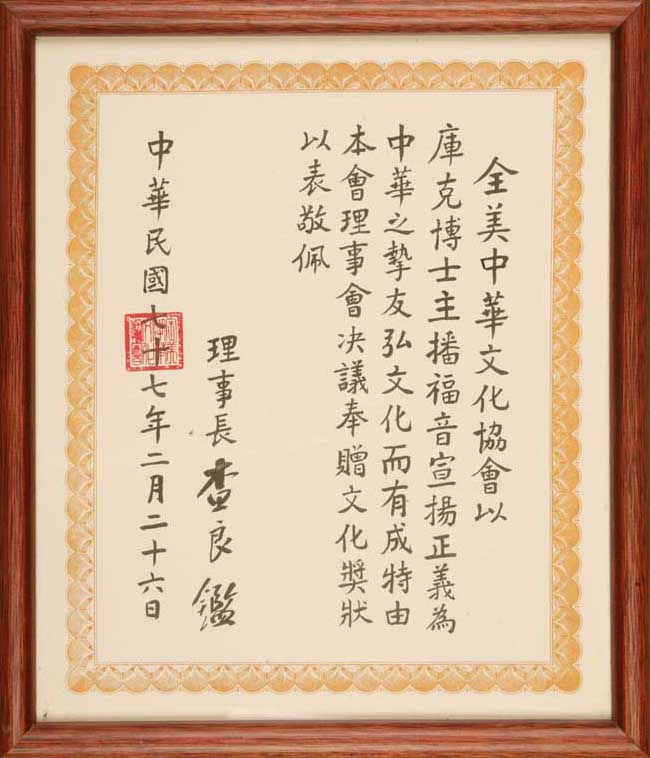 全美中華文化協會以
庫克博士主播福音宣揚正義為
中華之摯友弘文化而有成特由
本會理事會決議奉贈文化獎狀
以表敬佩
理事長查良鑑
中華民國七十七年二月二十六日